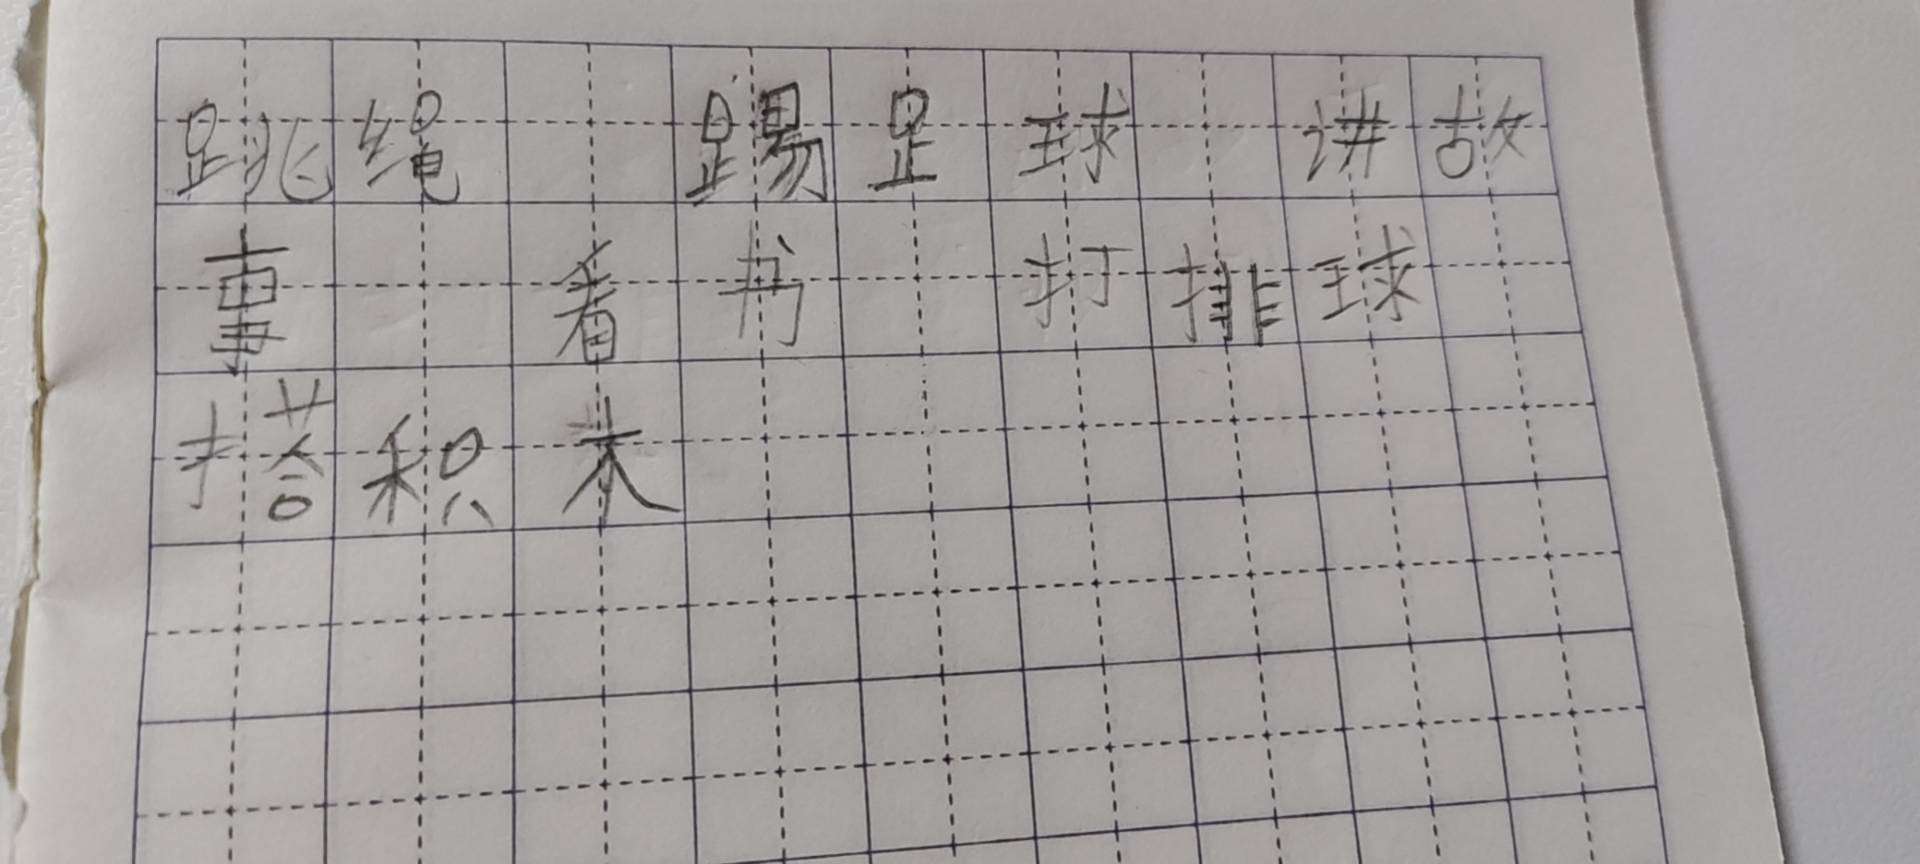 跳绳 踢足球 讲故
事 看书 打排球
搭积木